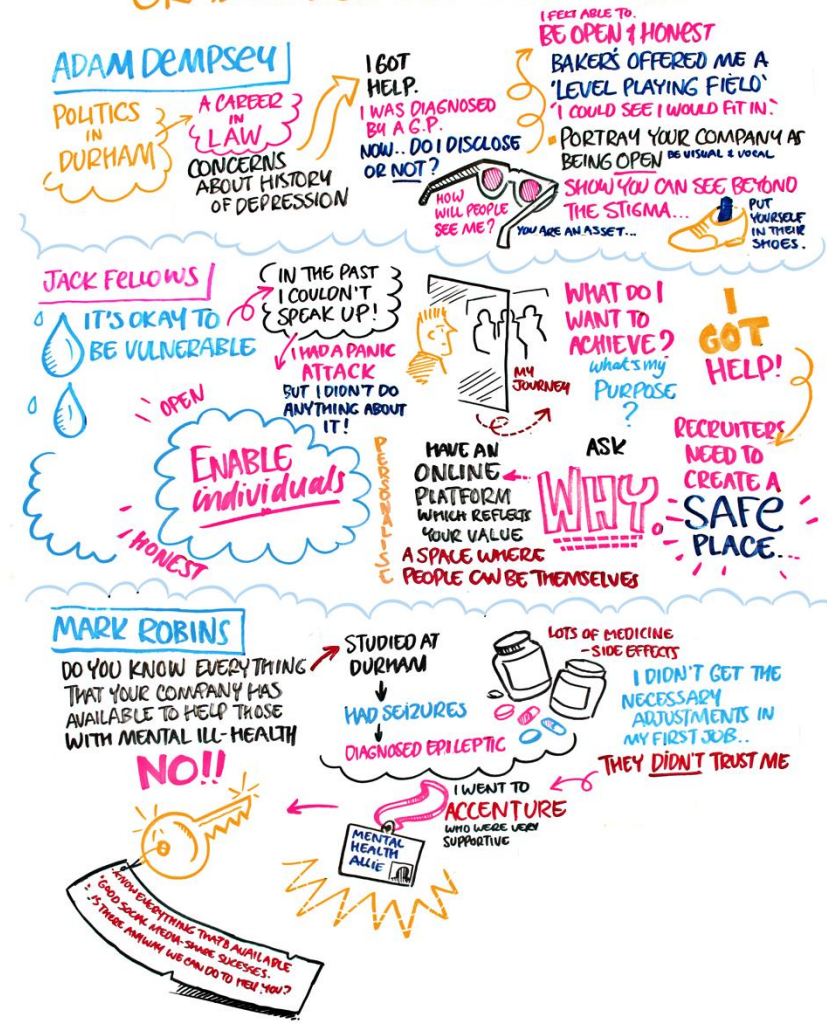 ADAM DEMPSEY
POLITICS
IN
DURHAM
A CAREER
IN
LAW
CONCERNS
ABOUT HISTORY
OF DEPRESSION
I GOT
HELP.
I WAS DIAGNOSED
BY A G.P.
NOW.. DO I DISCLOSE
OR NOT?
HOW
WILL PEOPLE
SEE ME?
YOU ARE AN ASSET...
I FELT ABLE TO.
BE OPEN & HONEST
BAKERS OFFERED ME A
'LEVEL PLAYING FIELD'
'I COULD SEE I WOULD FIT IN.'
PORTRAY YOUR COMPANY AS
BEING OPEN BE VISUAL & VOCAL
SHOW YOU CAN SEE BEYOND
THE STIGMA...
PUT
YOURSELF
IN THEIR
SHOES.
JACK FELLOWS
IT'S OKAY TO
BE VULNERABLE
IN THE PAST
I COULDN'T
SPEAK UP!
I HAD A PANIC
ATTACK
BUT I DIDN'T DO
ANYTHING ABOUT
IT!
MY
JOURNEY
WHAT DO I
WANT TO
ACHIEVE?
what's my
PURPOSE
?
I
GOT
HELP!
RECRUITERS
NEED TO
CREATE A
SAFE
PLACE...
ASK
WHY.
HAVE AN
ONLINE
PLATFORM
WHICH REFLECTS
YOUR VALUE
A SPACE WHERE
PEOPLE CAN BE THEMSELVES
PERSONALISE
OPEN
ENABLE
individuals
HONEST
MARK ROBINS
DO YOU KNOW EVERYTHING
THAT YOUR COMPANY HAS
AVAILABLE TO HELP THOSE
WITH MENTAL ILL-HEALTH
NO!!
STUDIED AT
DURHAM
HAD SEIZURES
DIAGNOSED EPILEPTIC
LOTS OF MEDICINE
- SIDE EFFECTS
I DIDN'T GET THE
NECESSARY
ADJUSTMENTS IN
MY FIRST JOB..
THEY DIDN'T TRUST ME
I WENT TO
ACCENTURE
WHO WERE VERY
SUPPORTIVE
MENTAL
HEALTH
ALLIE
KNOW EVERYTHING THATS AVAILABLE
GOOD SOCIAL MEDIA-SHARE SUCESSES.
IS THERE ANYWAY WE CAN DO TO HELP YOU?